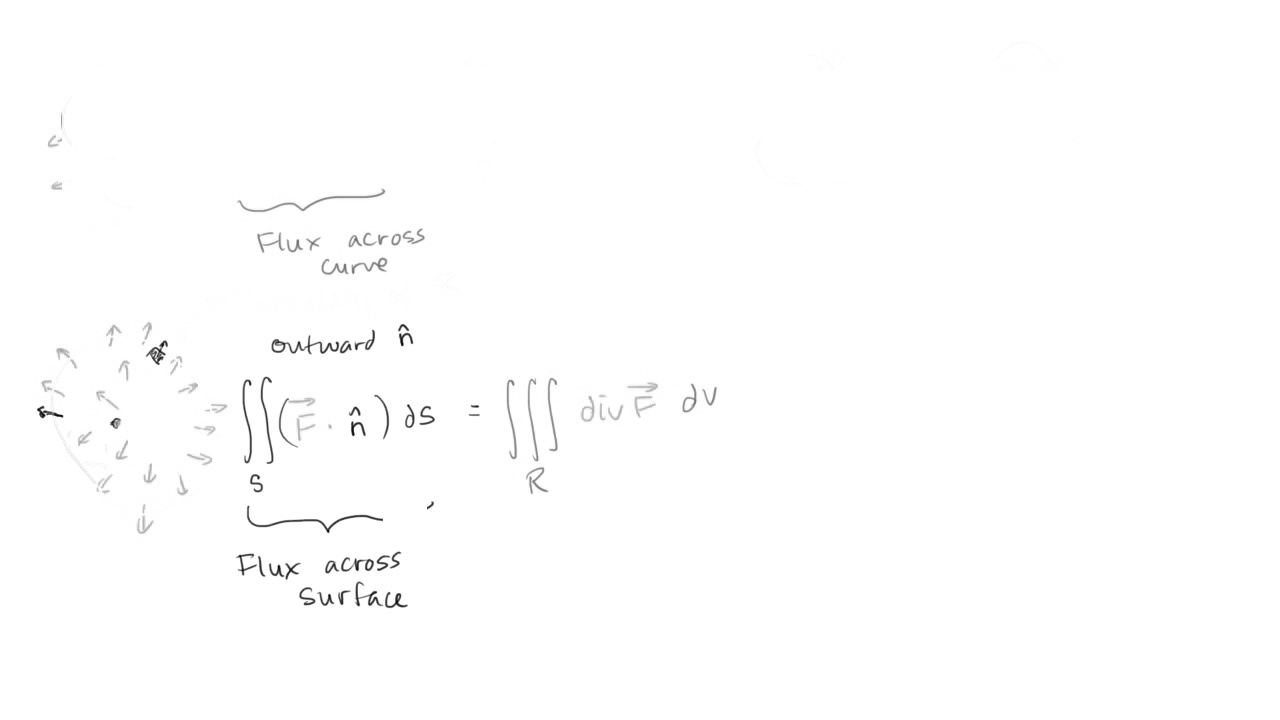 Flux across
curve
outward n̂
∬(F⃗ · n̂) ds = ∭ div F⃗ dv
S R
Flux across
surface